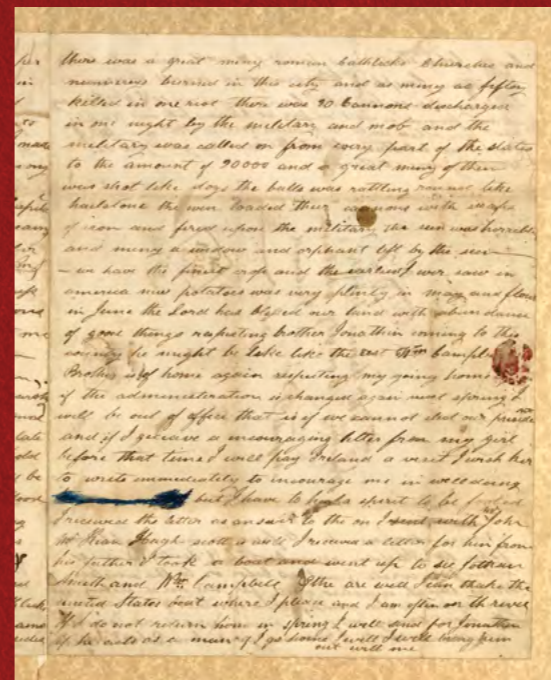 there was a great miny roman catholicks Churches and
numerous burned in this city and as miny as fiftey
killed in one riot ther was 90 Cannons discharged
in one night by the militarz and mob and the
military was called on from every part of the states
to the amount of 90000 and a great miny of them
wers shot like dogs the balls was rattling round like
hailstone the men loaded ther cannons with scraps
of iron and fired upon the military the seen was horrible
and miny a widow and orphant left by the seen
— we have the finest crop and the earliest I ever saw in
america new potatoes was very plenty in may and flour
in June the Lord has blessed our land with abundance
of good things respecting brother Jonathin coming to this
country he might be like like the rest Wm Campbell
Brother is of home again respecting my going home
if the administeration is changed again next spring I
will be out of office that is if we cannot elect our preside
and if I receave a incouraging letter from my girl
before that time I will pay Ireland a visit I wish her
to write immediately to incourage me in welldoing
but I have to high a spirit to be fooled
I received the letter as answer to the on I sent with John
Hugh scott a well I receved a letter for him from
his father I took a boat and went up to see Jothran
Smith and Wm Campbell the are well I can take the
united States boat where I please and I am often on the river
If I do not return home in spring I will send for Jonathan
if he acts as a man if I go home I will I will bring him
out with me